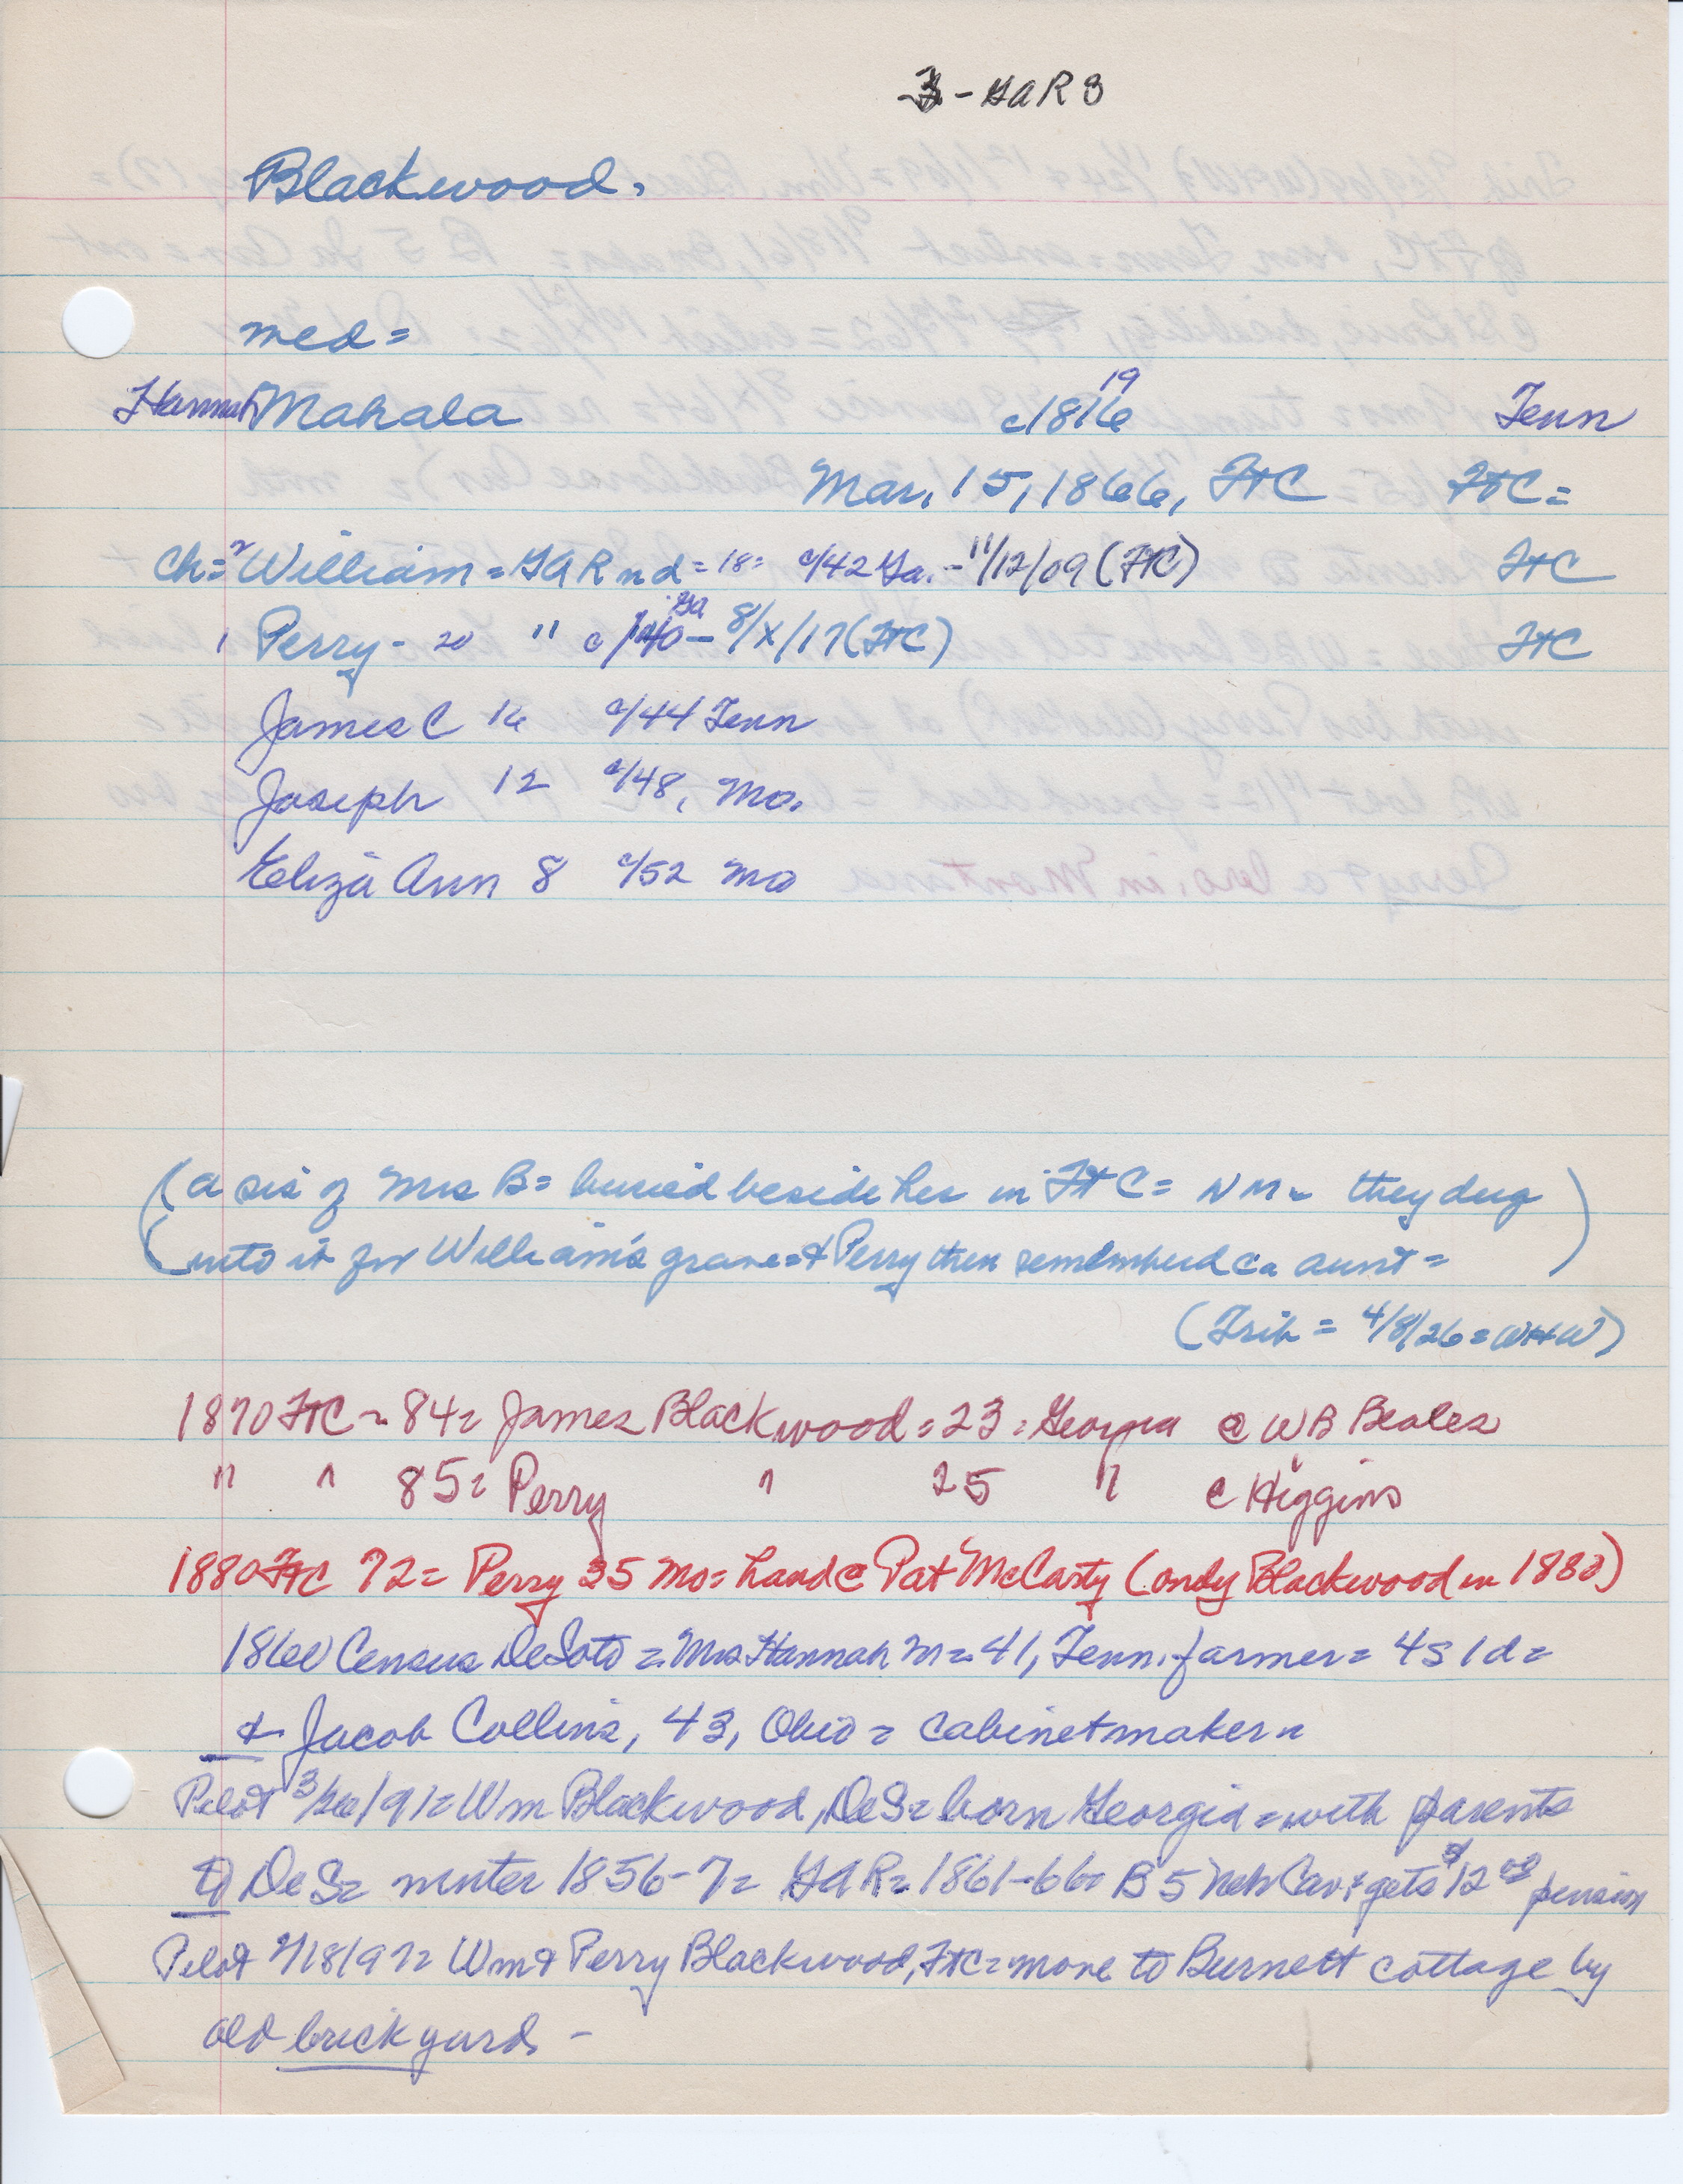 3 - GAR 8
Blackwood,
med =
Hannah Mahala c1816 19 Tenn
Mar. 15, 1866, FtC FtC =
Ch = 2 William = GAR nd = 18 = c/42 Ga. - 11/12/09 (FtC) FtC
1 Perry - 20 " c/40 Ga - 8/x/17 (FtC) FtC
James C 16 c/44 Tenn
Joseph 12 c/48, Mo.
Eliza Ann 8 c/52 Mo
(a sis of Mrs B = buried beside her in Ft C = NM = they dug
into it for William's grave = & Perry then remembered c a aunt =
(Trib = 4/8/26 = WHW)
1870 FtC = 84 = James Blackwood = 23 = Georgia @ WB Beales
" " 85 = Perry " 25 " @ Higgins
1880 FtC 72 = Perry 35 Mo = hand @ Pat McCarty (only Blackwood in 1880)
1860 Census DeSoto = Mrs Hannah M = 41, Tenn. farmer = 4s 1d =
& Jacob Collins, 43, Ohio = cabinetmaker =
Pilot 3/26/91 = Wm Blackwood, DeS = born Georgia = with parents
to DeS = winter 1856-7 = GAR = 1861-66 = B 5 Neb Cav & gets $12 00 pension
Pilot 7/18/97 = Wm & Perry Blackwood, FtC = move to Burnett cottage by
old brickyard -